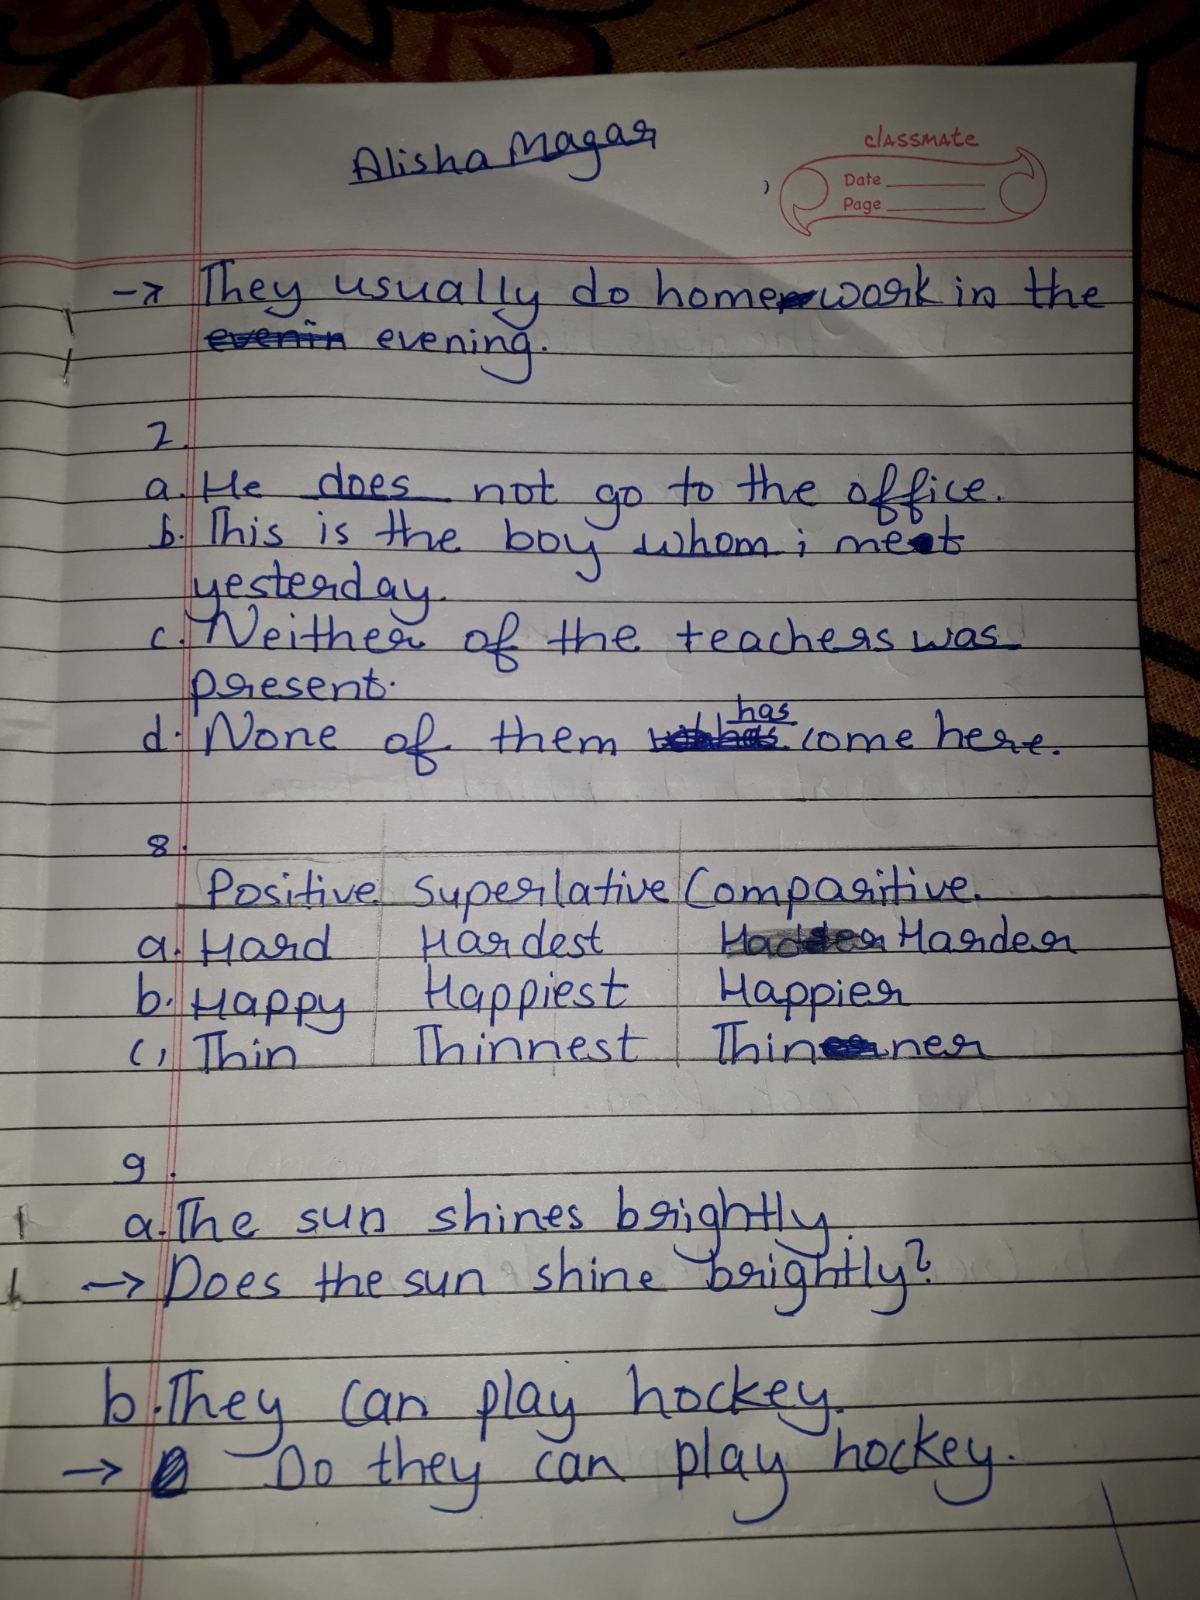 Alisha Magar
classmate
Date
Page
→ They usually do homework in the
evenin evening.
2.
a. He does not go to the office.
b. This is the boy whom i met
yesterday.
c. Neither of the teachers was
present.
d. None of them has come here.
8.
Positive Superlative Comparitive.
a. Hard Hardest Harder
b. Happy Happiest Happier
c, Thin Thinnest Thinner
9.
a. The sun shines brightly.
→ Does the sun shine brightly?
b. They can play hockey.
→ Do they can play hockey.